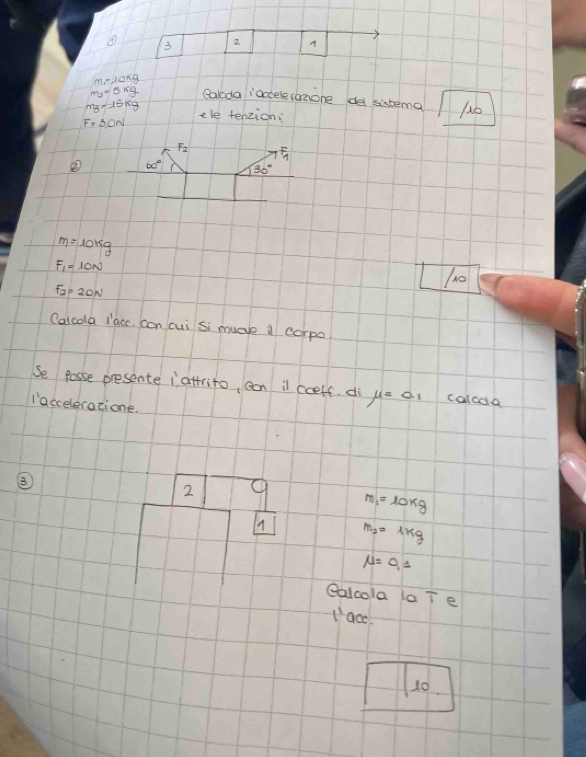 ①
3 2 1
m=10kg
m2=5kg
m3=15kg
F=50N
Calcola l'accelerazione del sistema
e le tenzioni
/10
②
60° F2 F1 30°
m=10kg
F1=10N
F2=20N
/10
Calcola l'acc. con cui si muove il corpo
Se fosse presente l'attrito, con il coeff. di μ= 0,1 calcola
l'accelerazione.
③
2
1
m1=10kg
m2=1kg
μ=0,1
Calcola la T e
l'acc.
/10